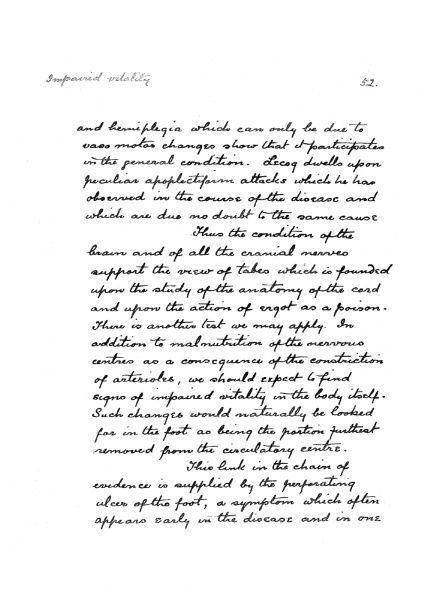 Impaired vitality
52.
and hemiplegia which can only be due to
vaso motor changes show that it participates
in the general condition. Lecoq dwells upon
peculiar apoplectiform attacks which he has
observed in the course of the disease and
which are due no doubt to the same cause
Thus the condition of the
brain and of all the cranial nerves
support the view of tabes which is founded
upon the study of the anatomy of the cord
and upon the action of ergot as a poison.
There is another test we may apply. In
addition to malnutrition of the nervous
centres as a consequence of the constriction
of arterioles, we should expect to find
signs of impaired vitality in the body itself.
Such changes would naturally be looked
for in the foot as being the portion furthest
removed from the circulatory centre.
This link in the chain of
evidence is supplied by the perforating
ulcer of the foot, a symptom which often
appears early in the disease and in one